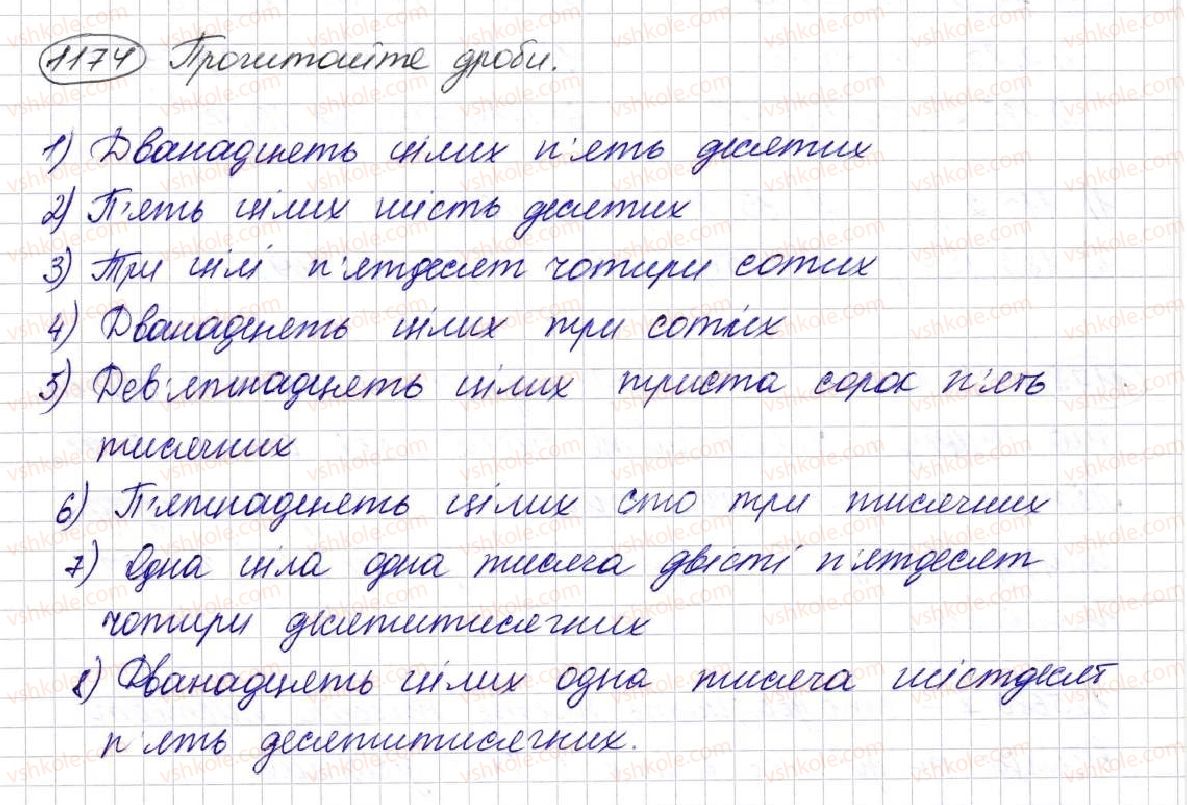 1174 Прочитайте дроби.
1) Дванадцять цілих п'ять десятих
2) П'ять цілих шість десятих
3) Три цілі п'ятдесят чотири сотих
4) Дванадцять цілих три сотих
5) Дев'ятнадцять цілих триста сорок п'ять
тисячних
6) П'ятнадцять цілих сто три тисячних
7) Одна ціла одна тисяча двісті п'ятдесят
чотири десятитисячних
8) Дванадцять цілих одна тисяча шістдесят
п'ять десятитисячних.